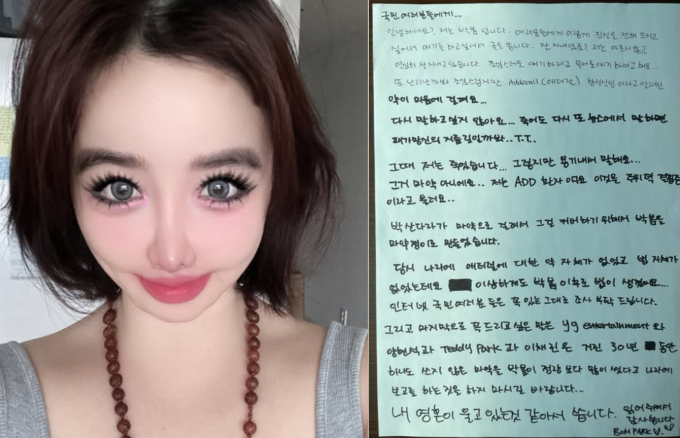 국민 여러분들에게...
안녕하세요? 저는 박봄 입니다. 여러분들에게 이렇게 진심을 전해 드리고
싶어서 얘기를 하고싶어서 글을 씁니다. 잘 지내셨죠? 저는
열심히 잘지내고있습니다. 조심스러운 얘기하려고
또 난리난까봐 조심스럽지만 Adderall (애더럴)
약이 마음에 걸려요...
다시 말하고싶지 않아요... 죽어도 다시 또 뉴스에서 말하면
패가망신의 지름길일까봐..T.T..
그때 저는 죽었습니다... 그렇지만 용기내서 말해요...
그거 마약 아니에요.. 저는 ADD 환자 이구요 이것은 주의력 결핍증
이라고 불러요..
박산다라가 마약으로 걸려서 그걸 커버하기 위해서 박봄을
마약쟁이로 만들었습니다.
당시 나라에 애더럴에 대한 약 자체가 없었고 법 자체가
없었는데요 이상하게도 박봄 이후로 법이 생겼어요...
인터넷 국민 여러분 들은 꼭 있는그대로 조사 부탁 드립니다.
그리고 마지막으로 꼭 드리고 싶은 말은 yg entertainment 와
양현석과 Teddy Park 과 이채린은 거진 30년 동안
하나도 쓰지 않은 마약은 박봄이 정량 보다 많이 썼다고 나라에
보고를 하는것은 하지 마시길 바랍니다...
내 영혼이 울고 있는것 같아서 씁니다. 읽어주셔서
감사합니다
BOM PARK